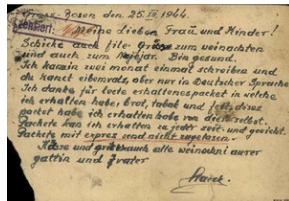 Gross-Rosen den 25.III 1944.
Meine Lieben Frau und Kinder!
Schicke auch file Grüse zum weinachten
und auch zum nejejar. Bin gesund.
Ich kann zwei monat einmal schreiben und
du kanst eibemrals, aber nor in Deutscher Sprache
Ich danke für erhaltenespacket in welche
ich erhalten habe, brot, tabak und fett, dises
packet habe ich erhalten habe von dir selbst.
Packete kann ich erhalten zu jeder zeit und gewicht.
Packete mit expres send nicht zugelasen.
Küse und grüse auch alle
gattin und frater